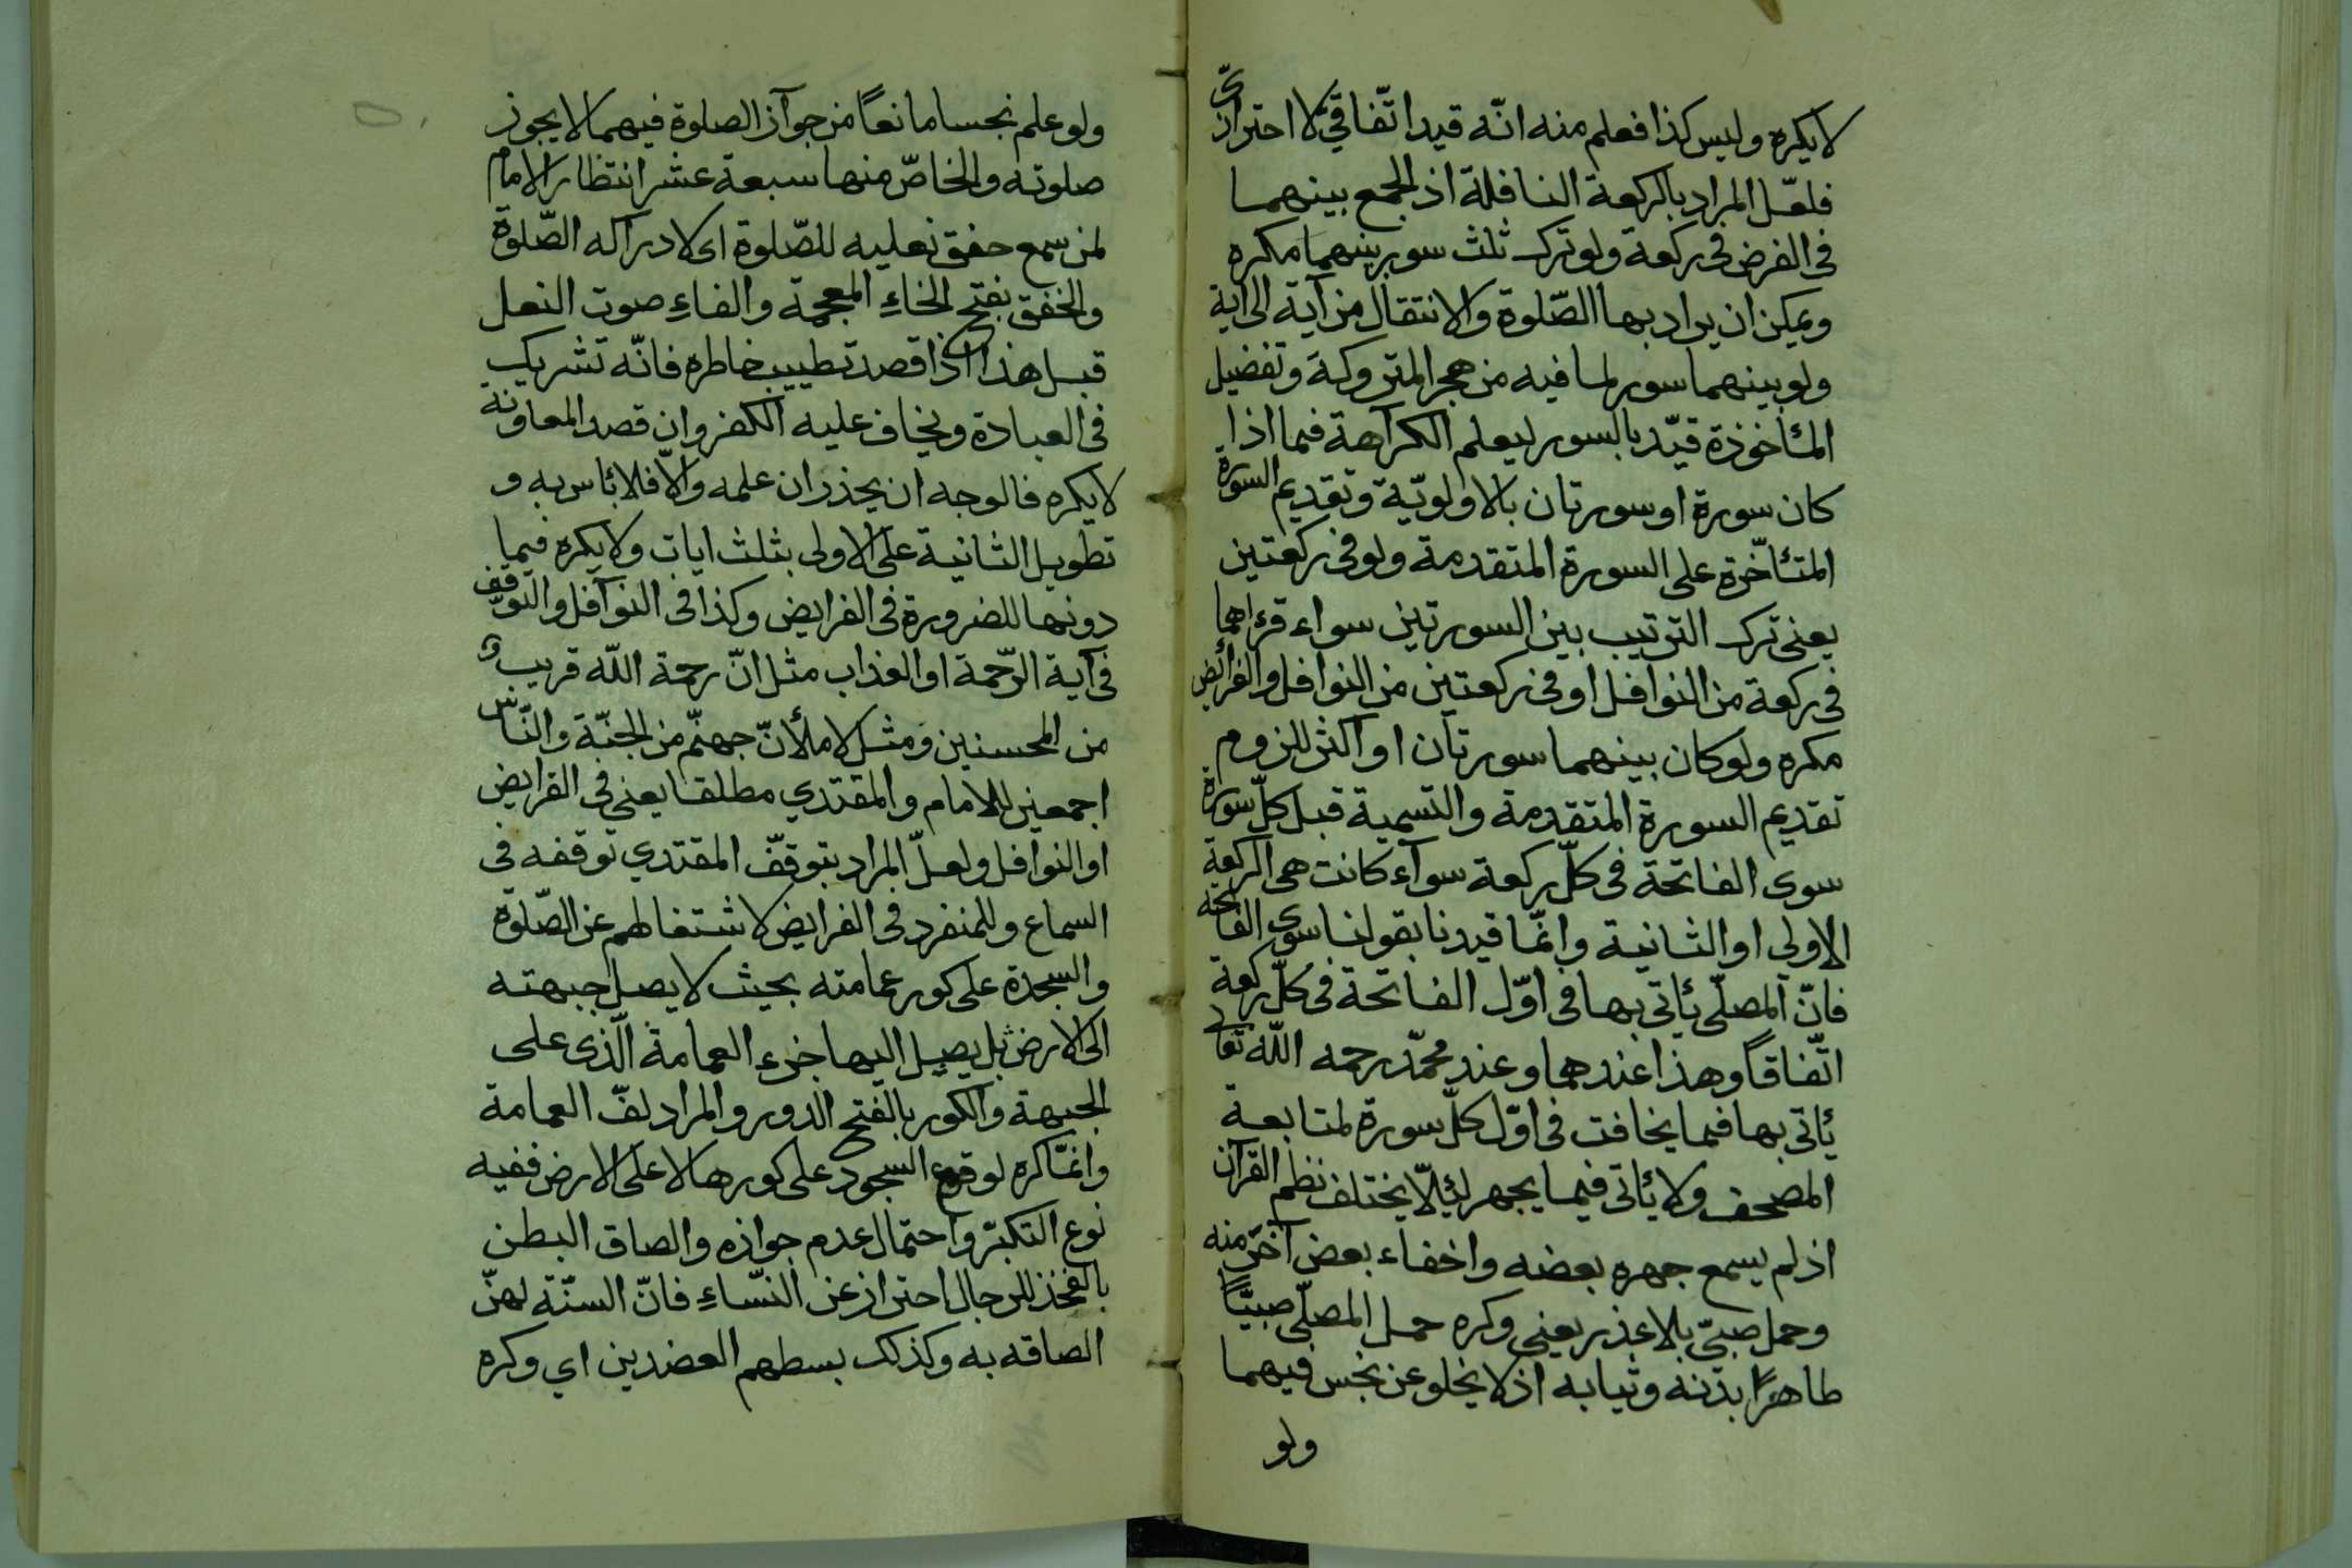 لا يكره وليس كذا فعلم منه انّه قيد اتّفاقيّ لا احترازىّ
فلعّل المراد بالركعة النافلة اذ الجمع بينهما
فى الفرض فى ركعة ولو ترك ثلث سور بينهما مكره
ويمكن ان يراد بها الصّلوة والانتقال من آية الى اية
ولو بينهما سور لما فيه من هجر المتروكة وتفضيل
المأخوذة قيّد بالسور ليعلم الكراهة فيما اذا
كان سورة او سورتان بالاولويّة وتقديم السورة
المتأخّرة على السورة المتقدمة ولو فى ركعتين
يعنى ترك الترتيب بين السورتين سواء قرءاهما
فى ركعة من النوافل او فى ركعتين من النوافل والفرائض
مكره ولو كان بينهما سورتان او اكثر للزوم
تقديم السورة المتقدمة والتسمية قبل كلّ سورة
سوى الفاتحة فى كلّ ركعة سوآء كانت هى الركعة
الاولى او الثانية وانّما قيدنا بقولنا سوى الفاتحة
فانّ المصلّى يأتى بها فى اوّل الفاتحة فى كلّ ركعة
اتّفاقًا وهذا عندهما وعند محمّد رحمه اللّه تعالى
يأتى بها فيما يخافت فى اوّل كلّ سورة لمتابعة
المصحف ولا يأتى فيما يجهر لئلّا يختلف نظم القرآن
اذ لم يسمع جهره بعضه واخفاء بعض آخر منه
وحمل صبىّ بلا عذر يعنى وكره حمل المصلّى صبيًّا
طاهرًا بدنه وثيابه اذ لا يخلو عن نجس فيهما
ولو
ولو علم نجسا مانعًا من جوآز الصلوة فيهما لا يجوز
صلوته والخاصّ منها سبعة عشر انتظار الامام
لمن سمع حفق نعليه للصّلوة اى لادراكه الصّلوة
والخفق بفتح الخاءِ المعجمة والفاءِ صوت النعل
قبل هذا اذا قصد تطييب خاطره فانّه تشريك
فى العبادة ويخاف عليه الكفر وان قصد المعاونة
لا يكره فالوجه ان يحذر ان علمه والّا فلا بأس به و
تطويل الثانية على الاولى بثلث ايات ولا يكره فيما
دونها للضرورة فى الفرايض وكذا فى النوآفل والتوقّف
فى آية الرّحمة او العذاب مثل انّ رحمة اللّه قريب
من المحسنين ومثل لاملأنّ جهنّم من الجنّة والنّاس
اجمعين للامام والمقتدي مطلقا يعنى فى الفرايض
او النوافل ولعلّ المراد بتوقّف المقتدي توقفه فى
السماع وللمنفرد فى الفرايض لاشتغالهم عن الصّلوة
والسجدة على كور عمامته بحيث لا يصل جبهته
الى الارض بل يصل اليها جزء العمامة الّذى على
الجبهة والكور بالفتح الدور والمراد لفّ العمامة
وانّما كره لوقوع السجود على كورها لا على الارض ففيه
نوع التكبّر واحتمال عدم جوازه والصاق البطن
بالفخذ للرجال احتراز عن النّساءِ فانّ السنّة لهنّ
الصاقه به وكذلك بسطهم العضدين اي وكره